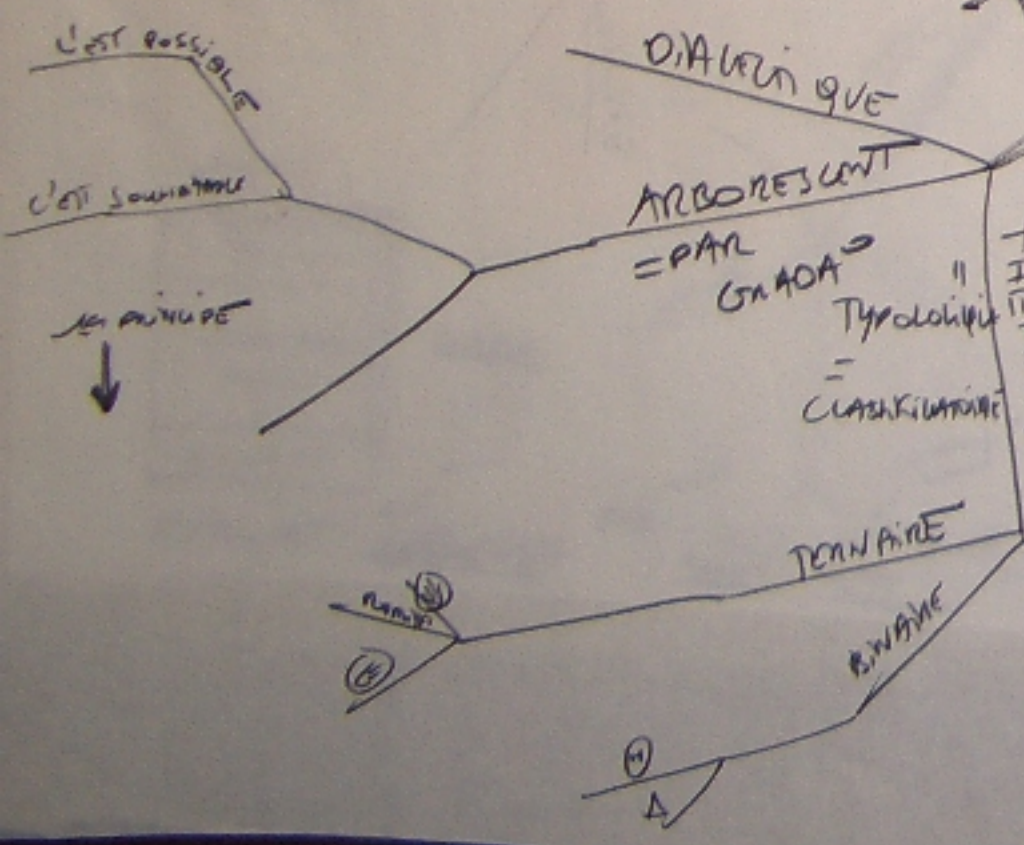 C'EST POSSIBLE
C'EST SOUHAITABLE
PRINCIPE
DIALECTIQUE
ARBORESCENT
= PAR
GRADA°
"
TYPOLOGIQUE
=
CLASSIFICATOIRE
TERNAIRE
BINAIRE